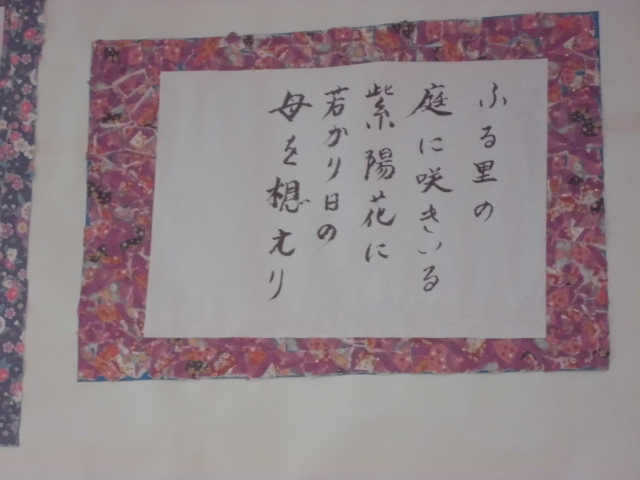 ふる里の
庭に咲きいる
紫陽花に
若かり日の
母を想えり